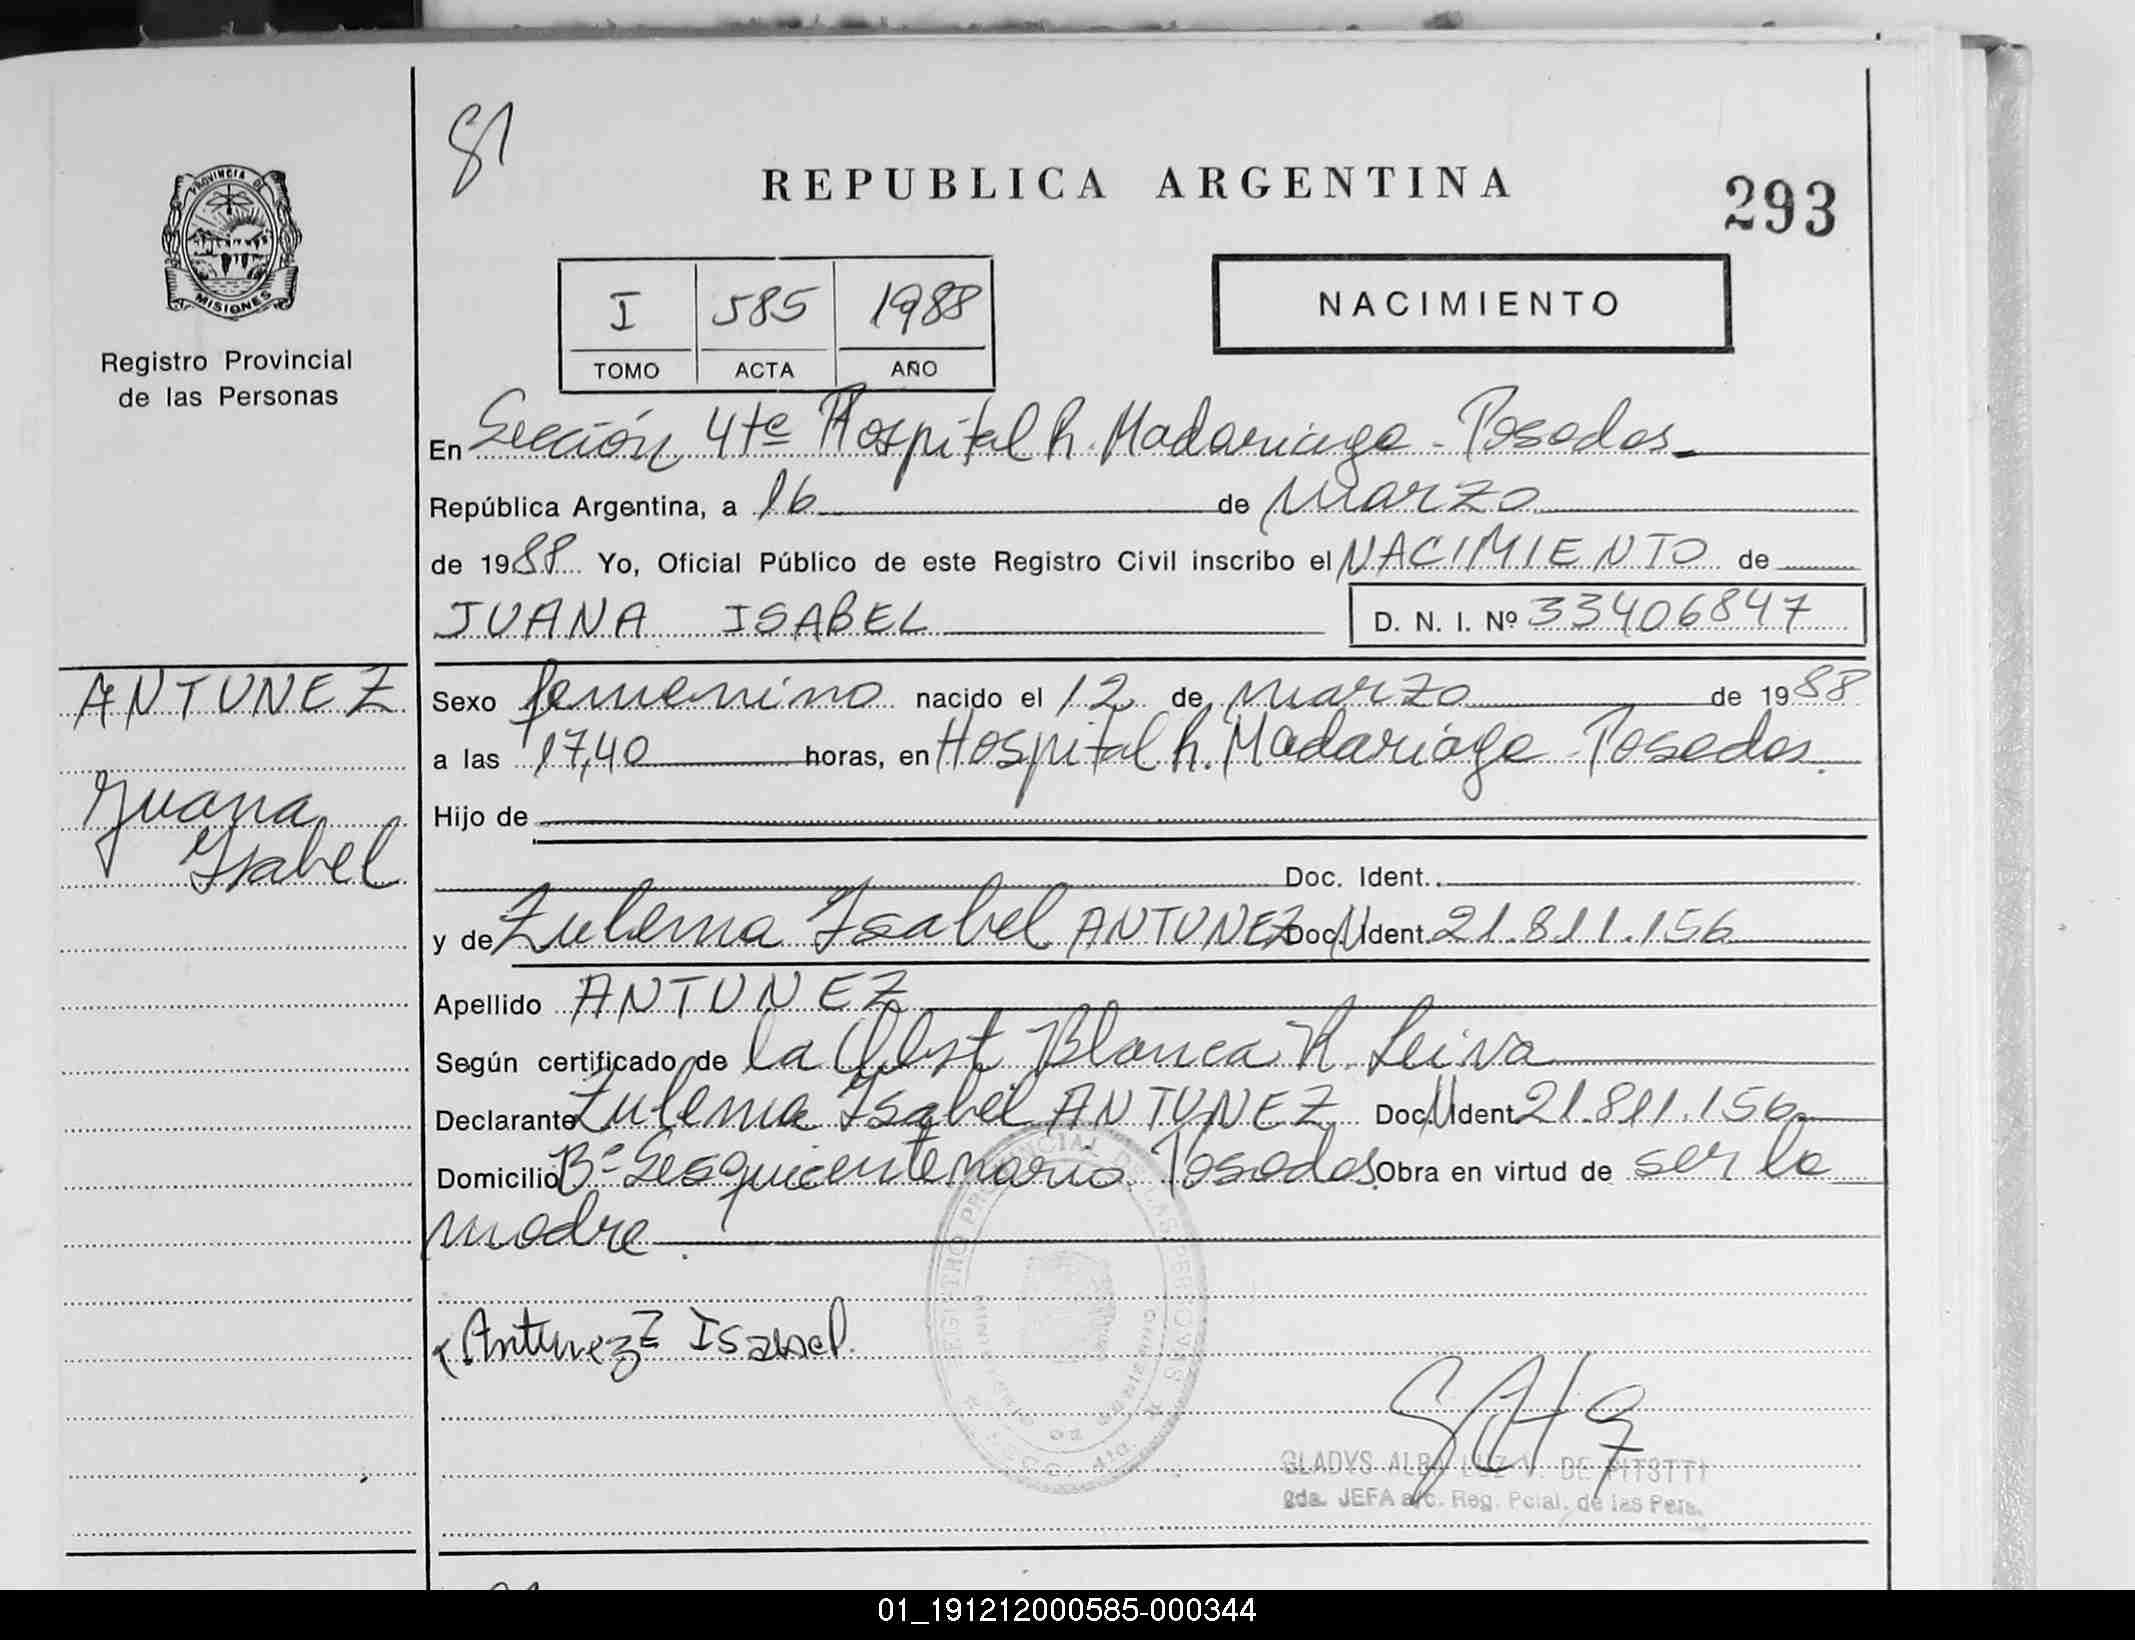 PROVINCIA DE
MISIONES
Registro Provincial
de las Personas
REPUBLICA ARGENTINA
293
I 585 1988
TOMO ACTA AÑO
NACIMIENTO
En Sección 4ta Hospital R. Madariaga - Posadas
República Argentina, a 16 de marzo
de 1988 Yo, Oficial Público de este Registro Civil inscribo el NACIMIENTO de
JUANA ISABEL D. N. I. Nº 33406847
ANTUNEZ
Juana
Isabel
Sexo femenino nacido el 12 de marzo de 1988
a las 17,40 horas, en Hospital R. Madariaga - Posadas.
Hijo de
Doc. Ident.
y de Zulema Isabel ANTUNEZ Doc. Ident. 21.811.156
Apellido ANTUNEZ
Según certificado de la Obst Blanca R. Leiva
Declarante Zulema Isabel ANTUNEZ Doc. Ident. 21.811.156
Domicilio Bº Sesquicentenario Posadas. Obra en virtud de ser la
madre.
Antunez Isabel.
REGISTRO PROVINCIAL DE LAS PERSONAS
GLADYS ALBA LUZ V. DE PITSTTI
2da. JEFA a/c. Reg. Pcial. de las Pers.
01_191212000585-000344